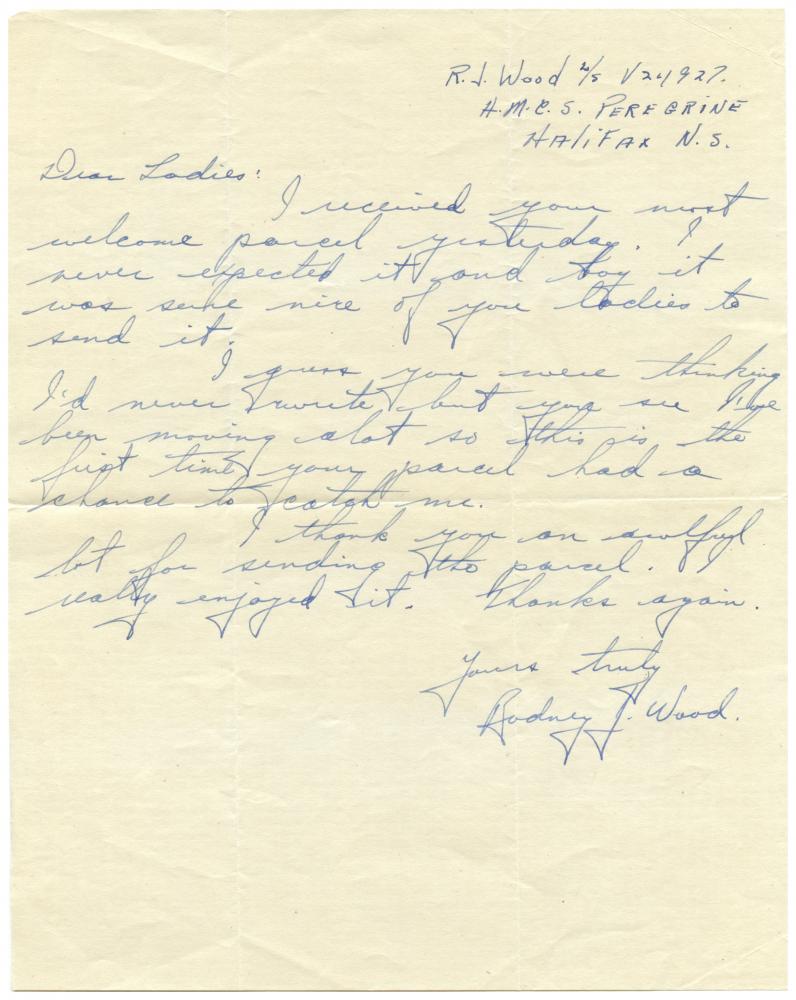 R. J. Wood L/S V24927.
H.M.C.S. PEREGRINE
HALIFAX N.S.
Dear Ladies:
I received your most
welcome parcel yesterday. I
never expected it and boy it
was nice of you ladies to
send it.
I guess you were thinking
I'd never write but you see I've
been moving alot so this is the
first time your parcel had a
chance to catch me.
I thank you an awlful
lot for sending the parcel. I
really enjoyed it. Thanks again.
Yours truly
Rodney J. Wood.